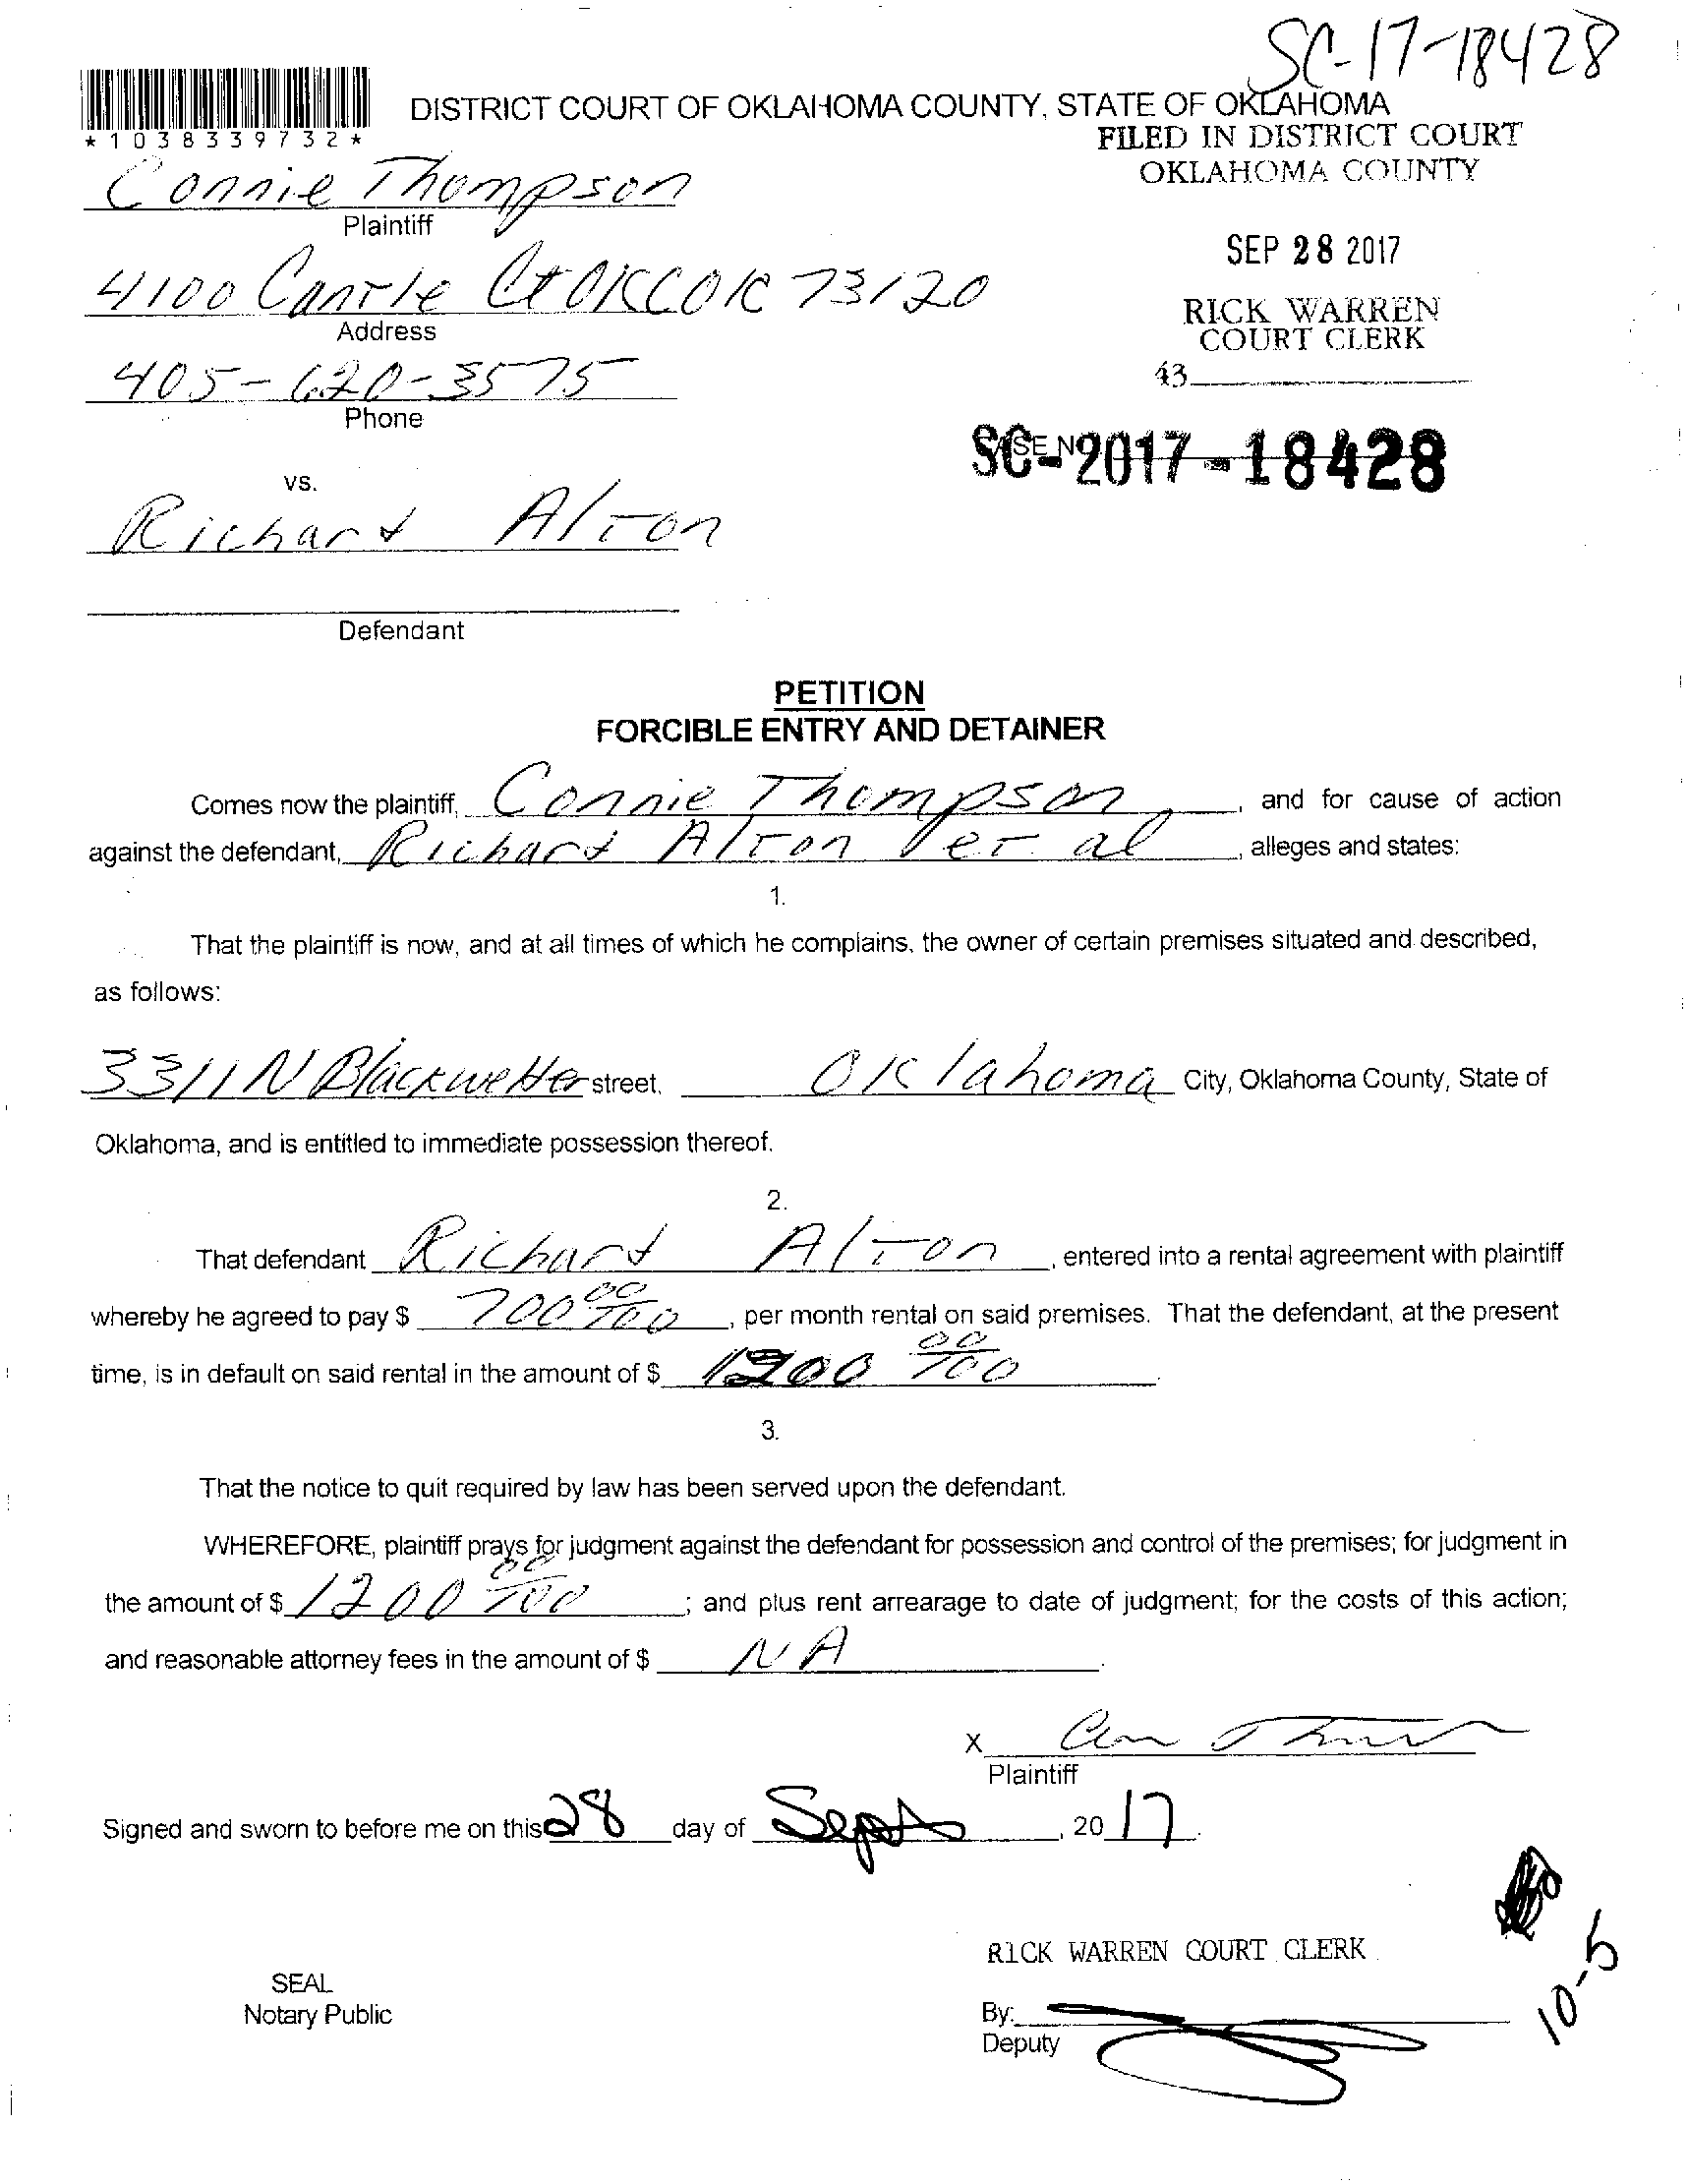 SC-17-18428
DISTRICT COURT OF OKLAHOMA COUNTY, STATE OF OKLAHOMA
*1038339732*
FILED IN DISTRICT COURT
OKLAHOMA COUNTY
Connie Thompson
Plaintiff
SEP 28 2017
4100 Cantle Ct OKC OK 73120
Address
RICK WARREN
COURT CLERK
405-620-3575
Phone
43
SC-2017-18428
vs.
Richard Alton
Defendant
PETITION
FORCIBLE ENTRY AND DETAINER
Comes now the plaintiff, Connie Thompson, and for cause of action
against the defendant, Richard Alton et al, alleges and states:
1.
That the plaintiff is now, and at all times of which he complains, the owner of certain premises situated and described,
as follows:
3311 N Blackwelder street, Oklahoma City, Oklahoma County, State of
Oklahoma, and is entitled to immediate possession thereof.
2.
That defendant Richard Alton, entered into a rental agreement with plaintiff
whereby he agreed to pay $ 700 00/100, per month rental on said premises. That the defendant, at the present
time, is in default on said rental in the amount of $ 1200 00/100.
3.
That the notice to quit required by law has been served upon the defendant.
WHEREFORE, plaintiff prays for judgment against the defendant for possession and control of the premises; for judgment in
the amount of $ 1200 00/100; and plus rent arrearage to date of judgment; for the costs of this action;
and reasonable attorney fees in the amount of $ NA.
X
Plaintiff
Signed and sworn to before me on this 28 day of Sept, 2017.
RICK WARREN COURT CLERK
10-5
SEAL
Notary Public
By:
Deputy